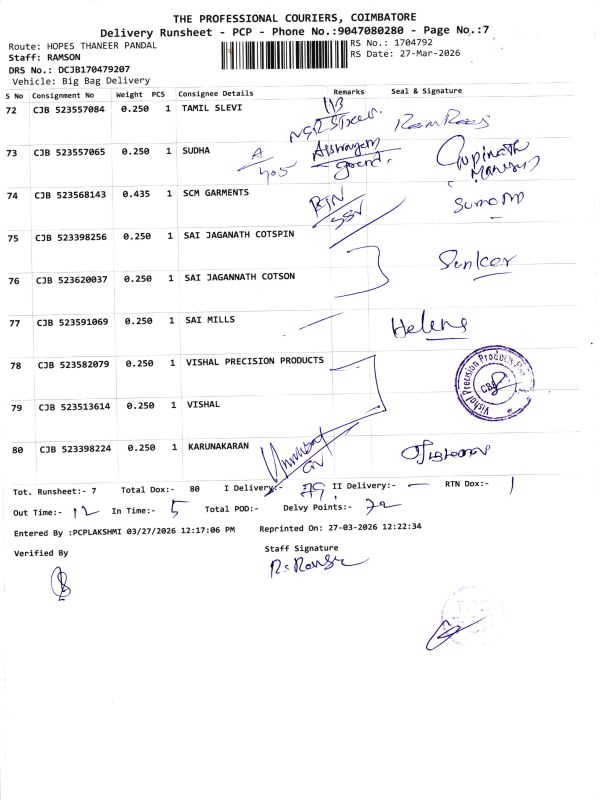 THE PROFESSIONAL COURIERS, COIMBATORE
Delivery Runsheet - PCP - Phone No.:9047080280 - Page No.:7
Route: HOPES THANEER PANDAL
RS No.: 1704792
Staff: RAMSON
RS Date: 27-Mar-2026
DRS No.: DCJB170479207
Vehicle: Big Bag Delivery
S No Consignment No Weight PCS Consignee Details Remarks Seal & Signature
72 CJB 523557084 0.250 1 TAMIL SLEVI
73 CJB 523557065 0.250 1 SUDHA A/405 Gupinath
74 CJB 523568143 0.435 1 SCM GARMENTS RTN
75 CJB 523398256 0.250 1 SAI JAGANATH COTSPIN
76 CJB 523620037 0.250 1 SAI JAGANNATH COTSON
77 CJB 523591069 0.250 1 SAI MILLS Helene
78 CJB 523582079 0.250 1 VISHAL PRECISION PRODUCTS
Vishal Precision Products
CBE
79 CJB 523513614 0.250 1 VISHAL
80 CJB 523398224 0.250 1 KARUNAKARAN
Tot. Runsheet:- 7 Total Dox:- 80 I Delivery:- 79 II Delivery:- — RTN Dox:- 1
Out Time:- 12 In Time:- 5 Total POD:- Delvy Points:- 72
Entered By :PCPLAKSHMI 03/27/2026 12:17:06 PM Reprinted On: 27-03-2026 12:22:34
Verified By Staff Signature